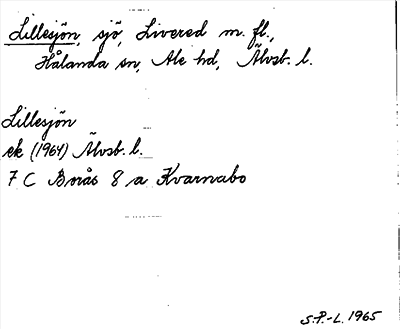 Lillesjön, sjö, Livered m. fl.,
Hålanda sn, Ale hd, Älvsb. l.
Lillesjön
ek (1964) Älvsb. l.
7 C Borås 8 a Kvarnabo
S.P.-L. 1965